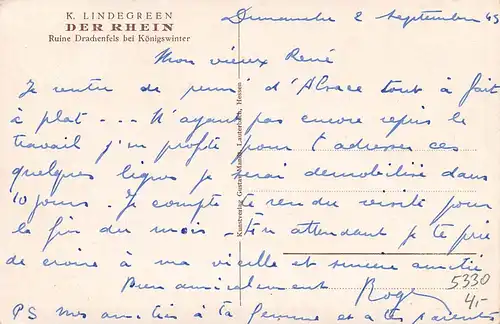 K. LINDEGREEN
DER RHEIN
Ruine Drachenfels bei Königswinter
Dimanche 2 Septembre 45
Mon vieux René
Je rentre de permi d'Alsace tout à fait
à plat --- N'ayant pas encore repris le
travail j'en profite pour t'adresser ces
quelques lignes je serai démobilisé dans
10 jours. Je compte te rendre visite pour
la fin du mois - En attendant je te prie
de croire à ma vieille et sincère amitié
Bien amicalement
Roger
PS mes amitiés à ta femme et à tes parents
Kunstverlag Gustav Mandt, Lauterbach, Hessen
5330
4,-